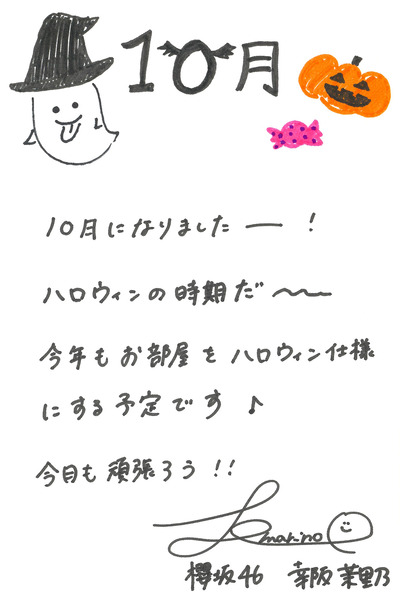 10月
10月になりましたー！
ハロウィンの時期だ〜
今年もお部屋をハロウィン仕様
にする予定です♪
今月も頑張ろう!!
marino
櫻坂46 幸阪茉里乃